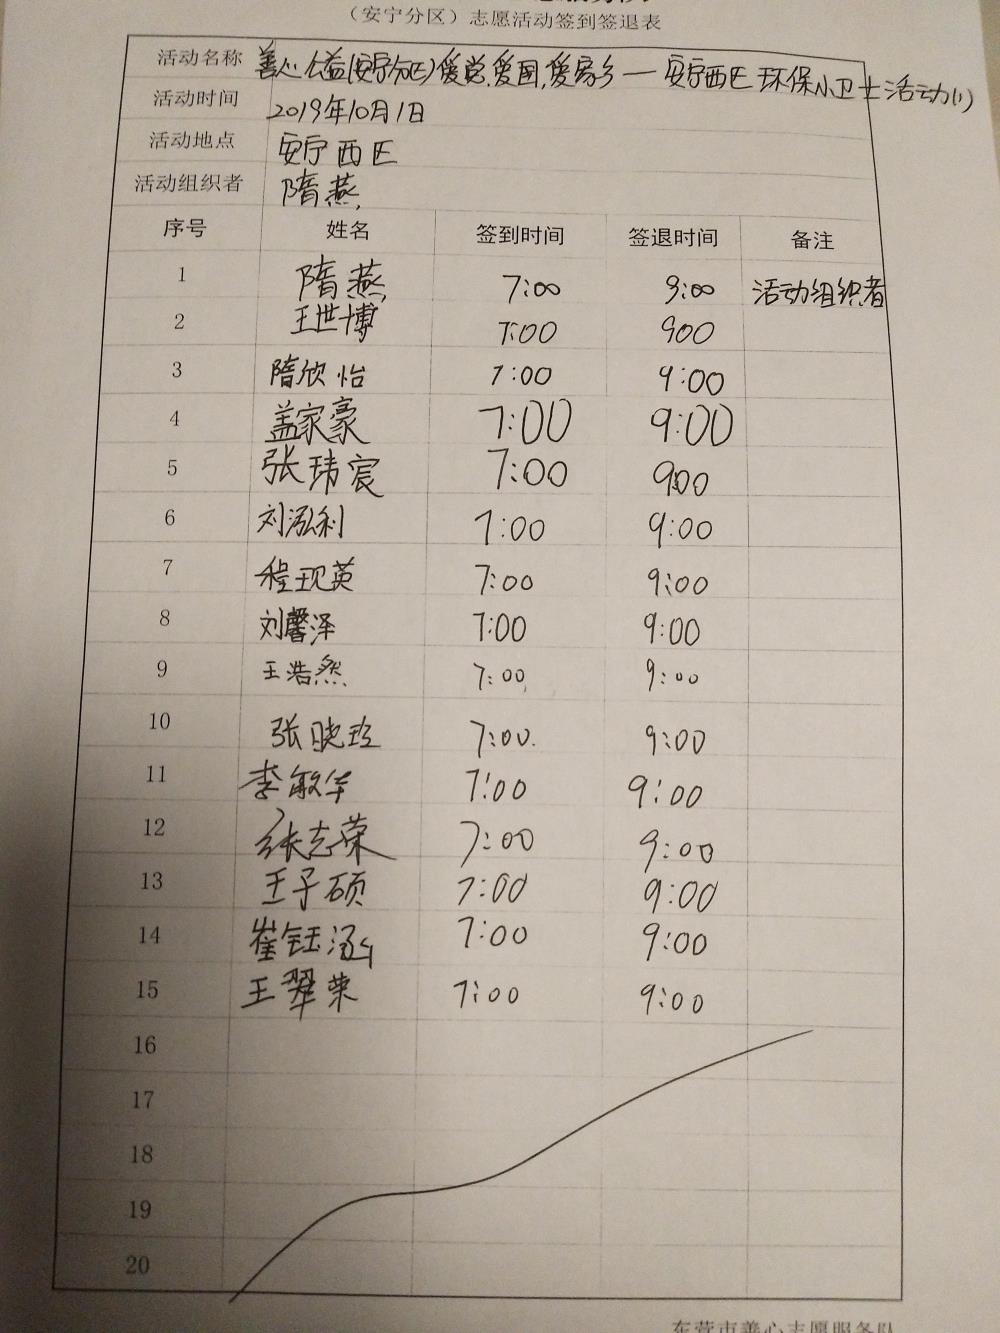 （安宁分区）志愿活动签到签退表
活动名称 善心公益(安宁分区)爱党,爱国,爱家乡一安宁西区环保小卫士活动(1)
活动时间 2019年10月1日
活动地点 安宁西区
活动组织者 隋燕
序号 姓名 签到时间 签退时间 备注
1 隋燕 7:00 9:00 活动组织者
2 王世博 7:00 900
3 隋欣怡 7:00 9:00
4 盖家豪 7:00 9:00
5 张玮宸 7:00 9:00
6 刘泓利 7:00 9:00
7 程现英 7:00 9:00
8 刘馨泽 7:00 9:00
9 王浩然 7:00 9:00
10 张晓玲 7:00 9:00
11 李敏华 7:00 9:00
12 张志荣 7:00 9:00
13 王子硕 7:00 9:00
14 崔钰涵 7:00 9:00
15 王翠荣 7:00 9:00
16
17
18
19
20
东营市善心志愿服务队